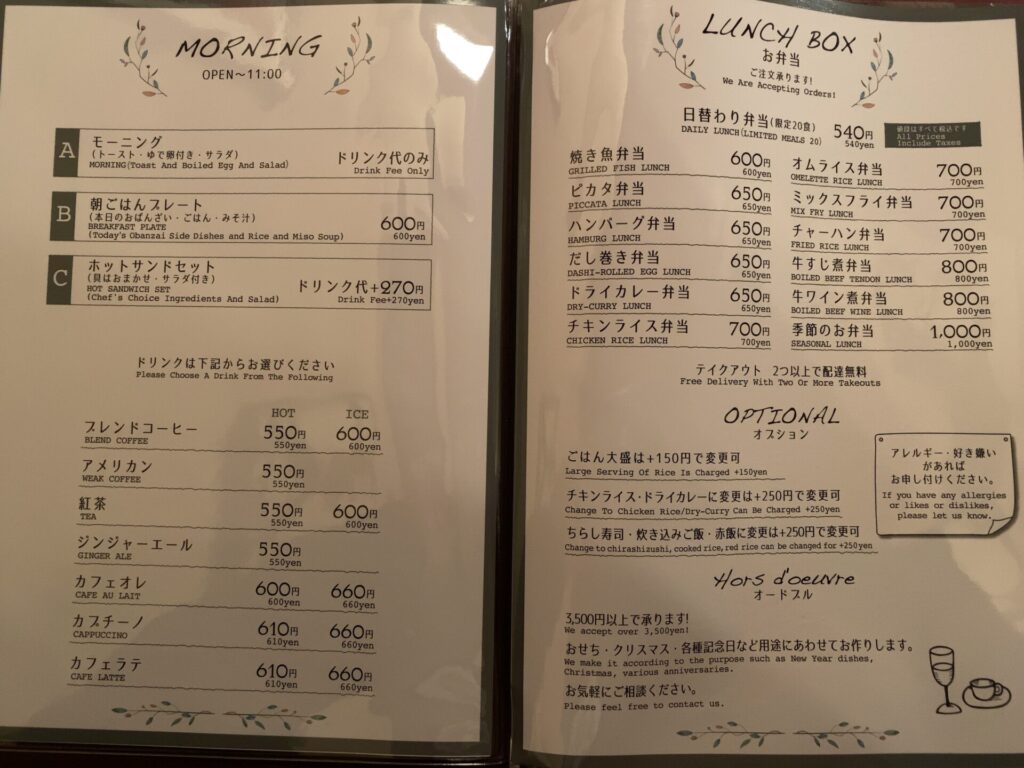 MORNING
OPEN〜11:00
A
モーニング
(トースト・ゆで卵付き・サラダ)
MORNING(Toast And Boiled Egg And Salad)
ドリンク代のみ
Drink Fee Only
B
朝ごはんプレート
(本日のおばんざい・ごはん・みそ汁)
BREAKFAST PLATE
(Today's Obanzai Side Dishes and Rice and Miso Soup)
600円
600yen
C
ホットサンドセット
(具はおまかせ・サラダ付き)
HOT SANDWICH SET
(Chef's Choice Ingredients And Salad)
ドリンク代+270円
Drink Fee+270yen
ドリンクは下記からお選びください
Please Choose A Drink From The Following
HOT ICE
ブレンドコーヒー 550円 600円
BLEND COFFEE 550yen 600yen
アメリカン 550円
WEAK COFFEE 550yen
紅茶 550円 600円
TEA 550yen 600yen
ジンジャーエール 550円
GINGER ALE 550yen
カフェオレ 600円 660円
CAFE AU LAIT 600yen 660yen
カプチーノ 610円 660円
CAPPUCCINO 610yen 660yen
カフェラテ 610円 660円
CAFE LATTE 610yen 660yen
LUNCH BOX
お弁当
ご注文承ります!
We Are Accepting Orders!
日替わり弁当(限定20食) 540円
DAILY LUNCH(LIMITED MEALS 20) 540yen
値段はすべて税込です
All Prices
Include Taxes
焼き魚弁当 600円
GRILLED FISH LUNCH 600yen
ピカタ弁当 650円
PICCATA LUNCH 650yen
ハンバーグ弁当 650円
HAMBURG LUNCH 650yen
だし巻き弁当 650円
DASHI-ROLLED EGG LUNCH 650yen
ドライカレー弁当 650円
DRY-CURRY LUNCH 650yen
チキンライス弁当 700円
CHICKEN RICE LUNCH 700yen
オムライス弁当 700円
OMELETTE RICE LUNCH 700yen
ミックスフライ弁当 700円
MIX FRY LUNCH 700yen
チャーハン弁当 700円
FRIED RICE LUNCH 700yen
牛すじ煮弁当 800円
BOILED BEEF TENDON LUNCH 800yen
牛ワイン煮弁当 800円
BOILED BEEF WINE LUNCH 800yen
季節のお弁当 1,000円
SEASONAL LUNCH 1,000yen
テイクアウト 2つ以上で配達無料
Free Delivery With Two Or More Takeouts
OPTIONAL
オプション
ごはん大盛は+150円で変更可
Large Serving Of Rice Is Charged +150yen
チキンライス・ドライカレーに変更は+250円で変更可
Change To Chicken Rice/Dry-Curry Can Be Charged +250yen
ちらし寿司・炊き込みご飯・赤飯に変更は+250円で変更可
Change to chirashizushi, cooked rice, red rice can be changed for +250yen
アレルギー・好き嫌い
があれば
お申し付けください。
If you have any allergies
or likes or dislikes,
please let us know.
Hors d'oeuvre
オードブル
3,500円以上で承ります!
We accept over 3,500yen!
おせち・クリスマス・各種記念日など用途にあわせてお作りします。
We make it according to the purpose such as New Year dishes,
Christmas, various anniversaries.
お気軽にご相談ください。
Please feel free to contact us.